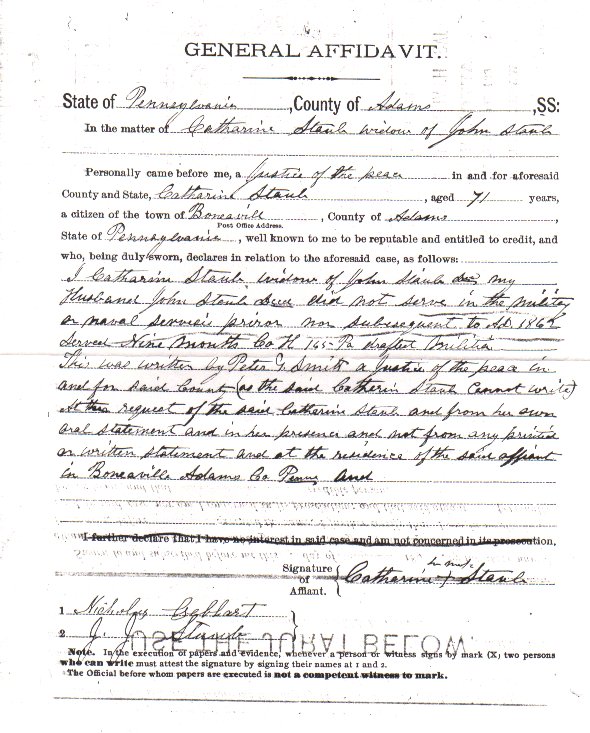 GENERAL AFFIDAVIT.
State of Pennsylvania, County of Adams, SS:
In the matter of Catharine Staub widow of John Staub
Personally came before me, a Justice of the peace in and for aforesaid
County and State, Catharine Staub, aged 71 years,
a citizen of the town of Boneavill, County of Adams,
Post Office Address.
State of Pennsylvania, well known to me to be reputable and entitled to credit, and
who, being duly sworn, declares in relation to the aforesaid case, as follows:
I Catharine Staub widow of John Staub my
Husband John Staub Decd did not serve in the military
or naval service prior nor subsequent to AD 186
served Nine Months Co H 165 Pa drafted Militia
This was written by Peter G. Smith a Justice of the peace in
and for said County (as the said Catherin Staub Cannot write)
At the request of the said Catharine Staub and from her own
oral statement and in her presence and not from any printed
or written statement and at the residence of the said affiant
in Boneaville Adams Co Penna and
I further declare that I have no interest in said case and am not concerned in its prosecution.
Signature
of
Affiant.
her mark
Catharine + Staub
1 Nicholas Gebhart
2 J. J. Staub
USE THE JURAT BELOW
Note. In the execution of papers and evidence, whenever a person or witness signs by mark (X) two persons
who can write must attest the signature by signing their names at 1 and 2.
The Official before whom papers are executed is not a competent witness to mark.